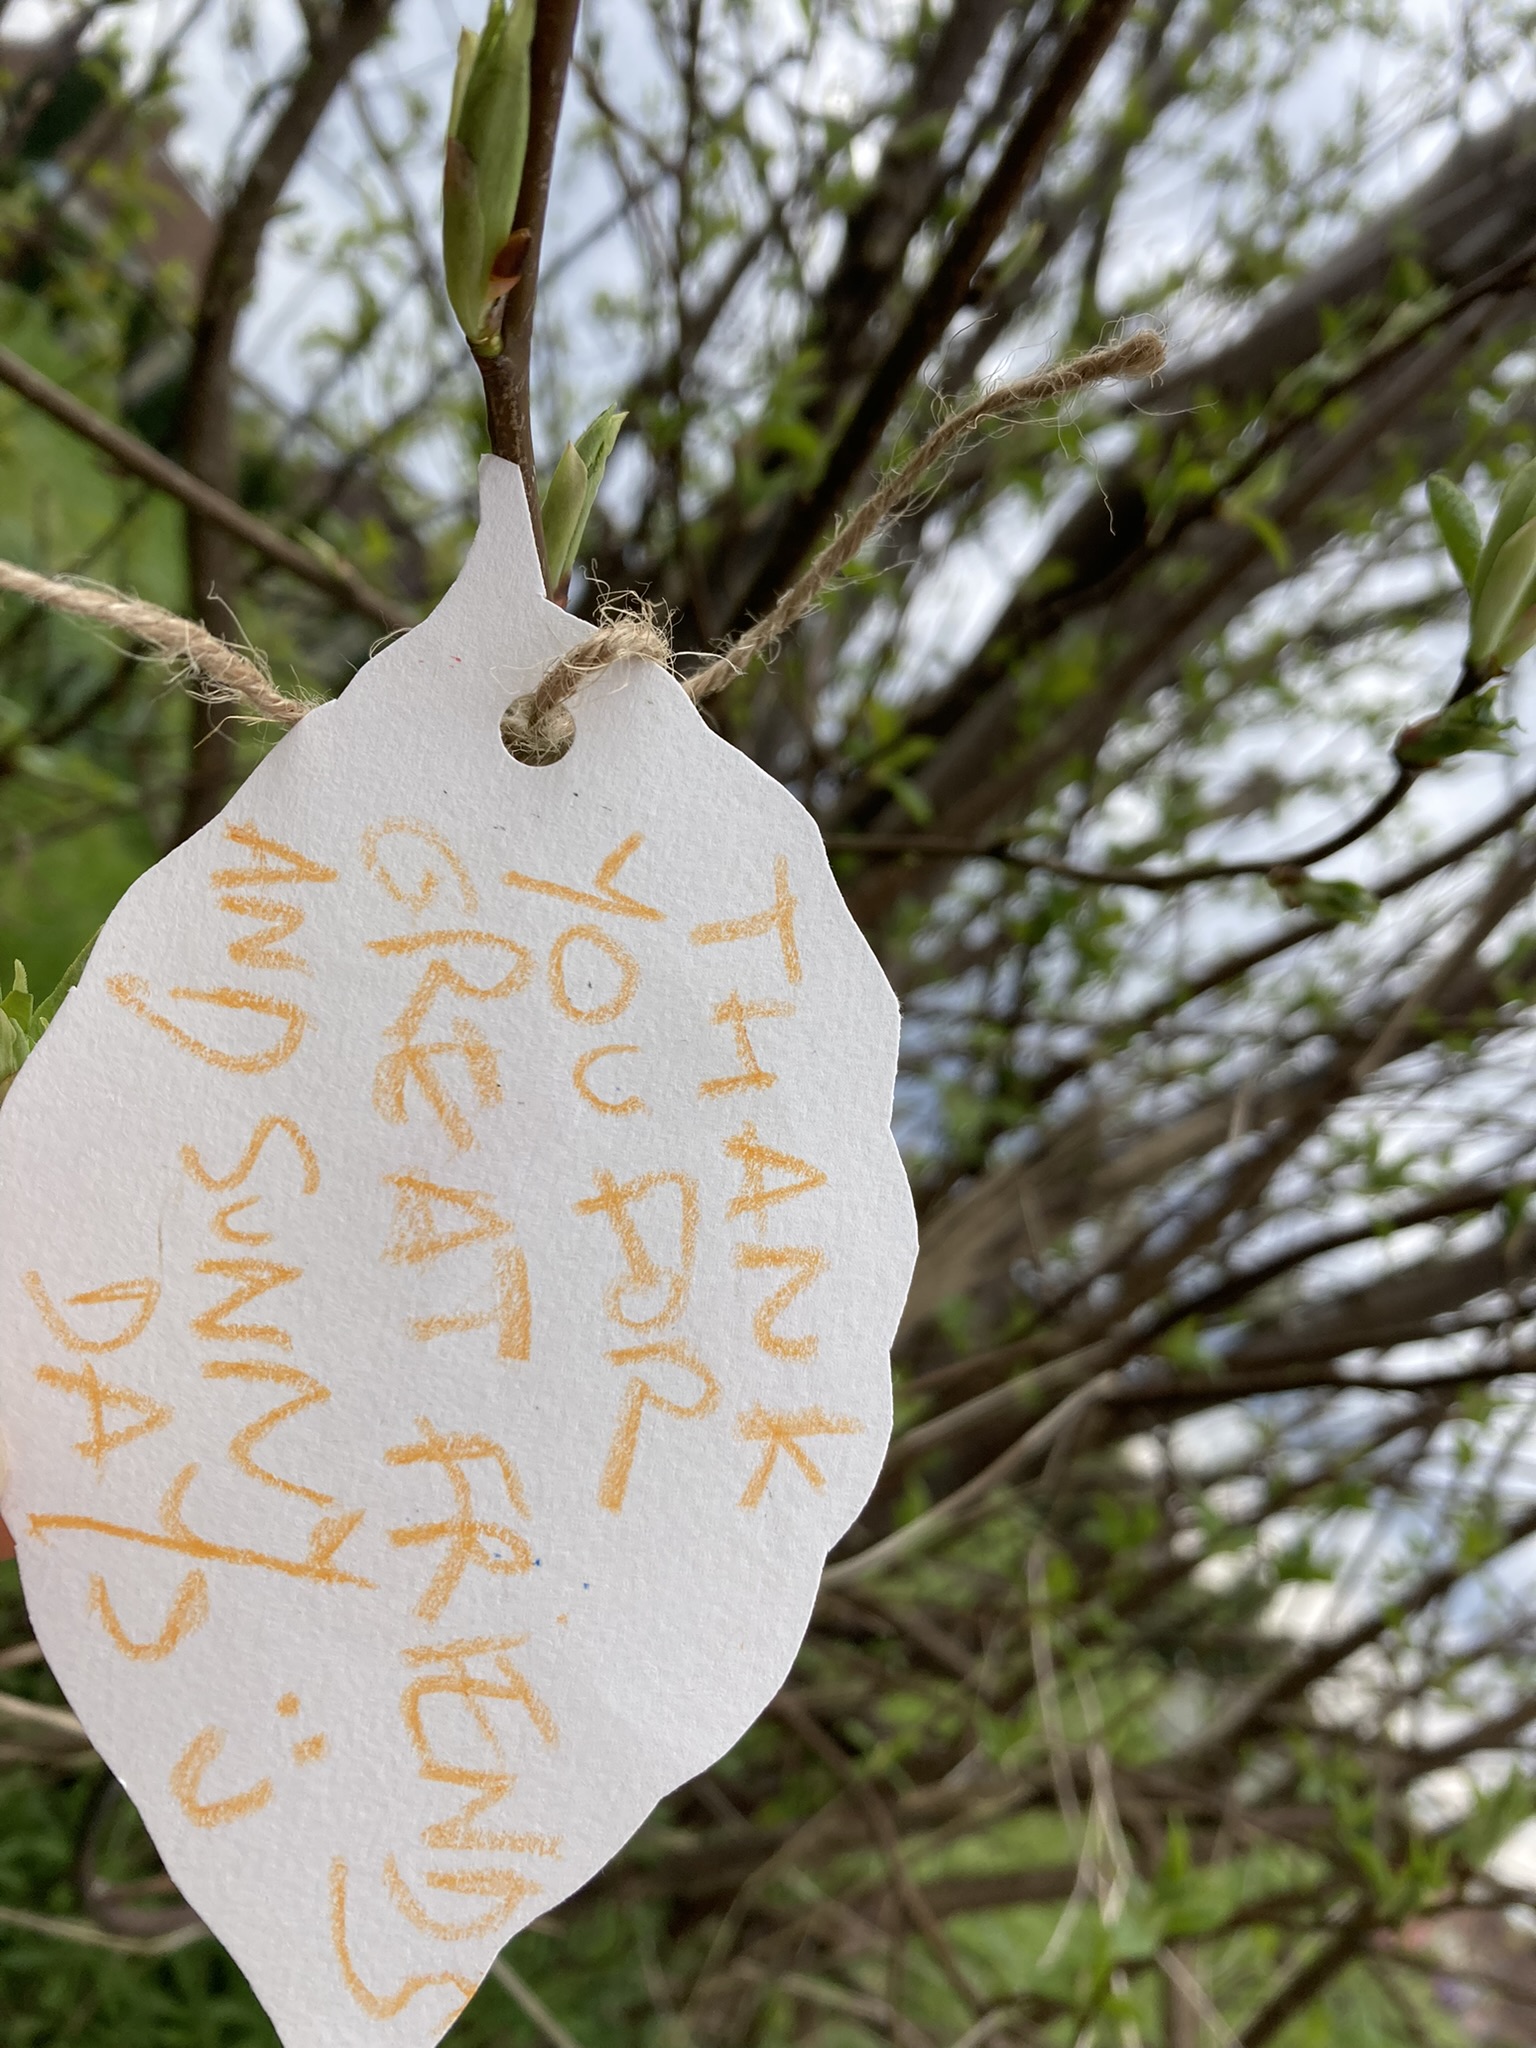 THANK
YOU FOR
GREAT FRIENDS
AND SUNNY
DAYS :)